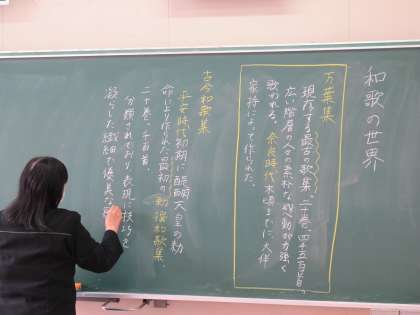 和歌の世界
万葉集
現存する最古の歌集。二十巻、四千五百首。
広い階層の人の素朴な感動が力強く
歌われる。奈良時代末頃までに、大伴
家持によって作られた。
古今和歌集
平安時代初期に醍醐天皇の勅
命により作られた最初の勅撰和歌集。
二十巻、千百首。
分類されており、表現に技巧を
凝らした繊細で優美な